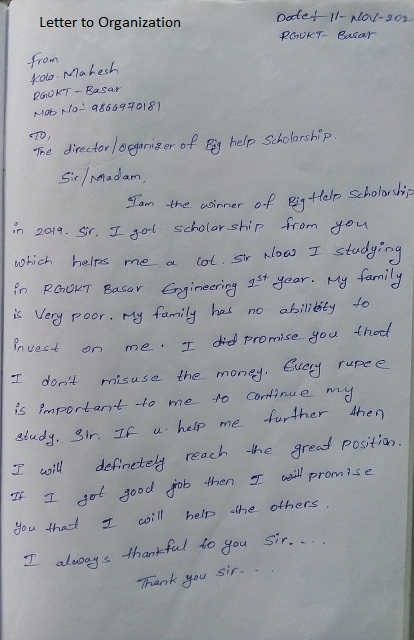 Letter to Organization
Date:- 11- Nov-202
RGUKT- Basar
From
Kola. Mahesh
RGUKT- Basar
Mob No:- 9866970181
To,
The director/organiser of Big help Scholarship.
Sir/Madam,
I am the winner of Big Help Scholarship
in 2019. Sir, I got scholarship from you
which helps me a lot. Sir Now I studying
in RGUKT Basar Engineering 1st year. My family
is very poor. My family has no ability to
invest on me. I did promise you that
I don't misuse the money. Every rupee
is important to me to continue my
study. Sir, If u help me further then
I will definetely reach the great position.
If I got good job then I will promise
you that I will help the others.
I always thankful to you Sir....
Thank you sir...